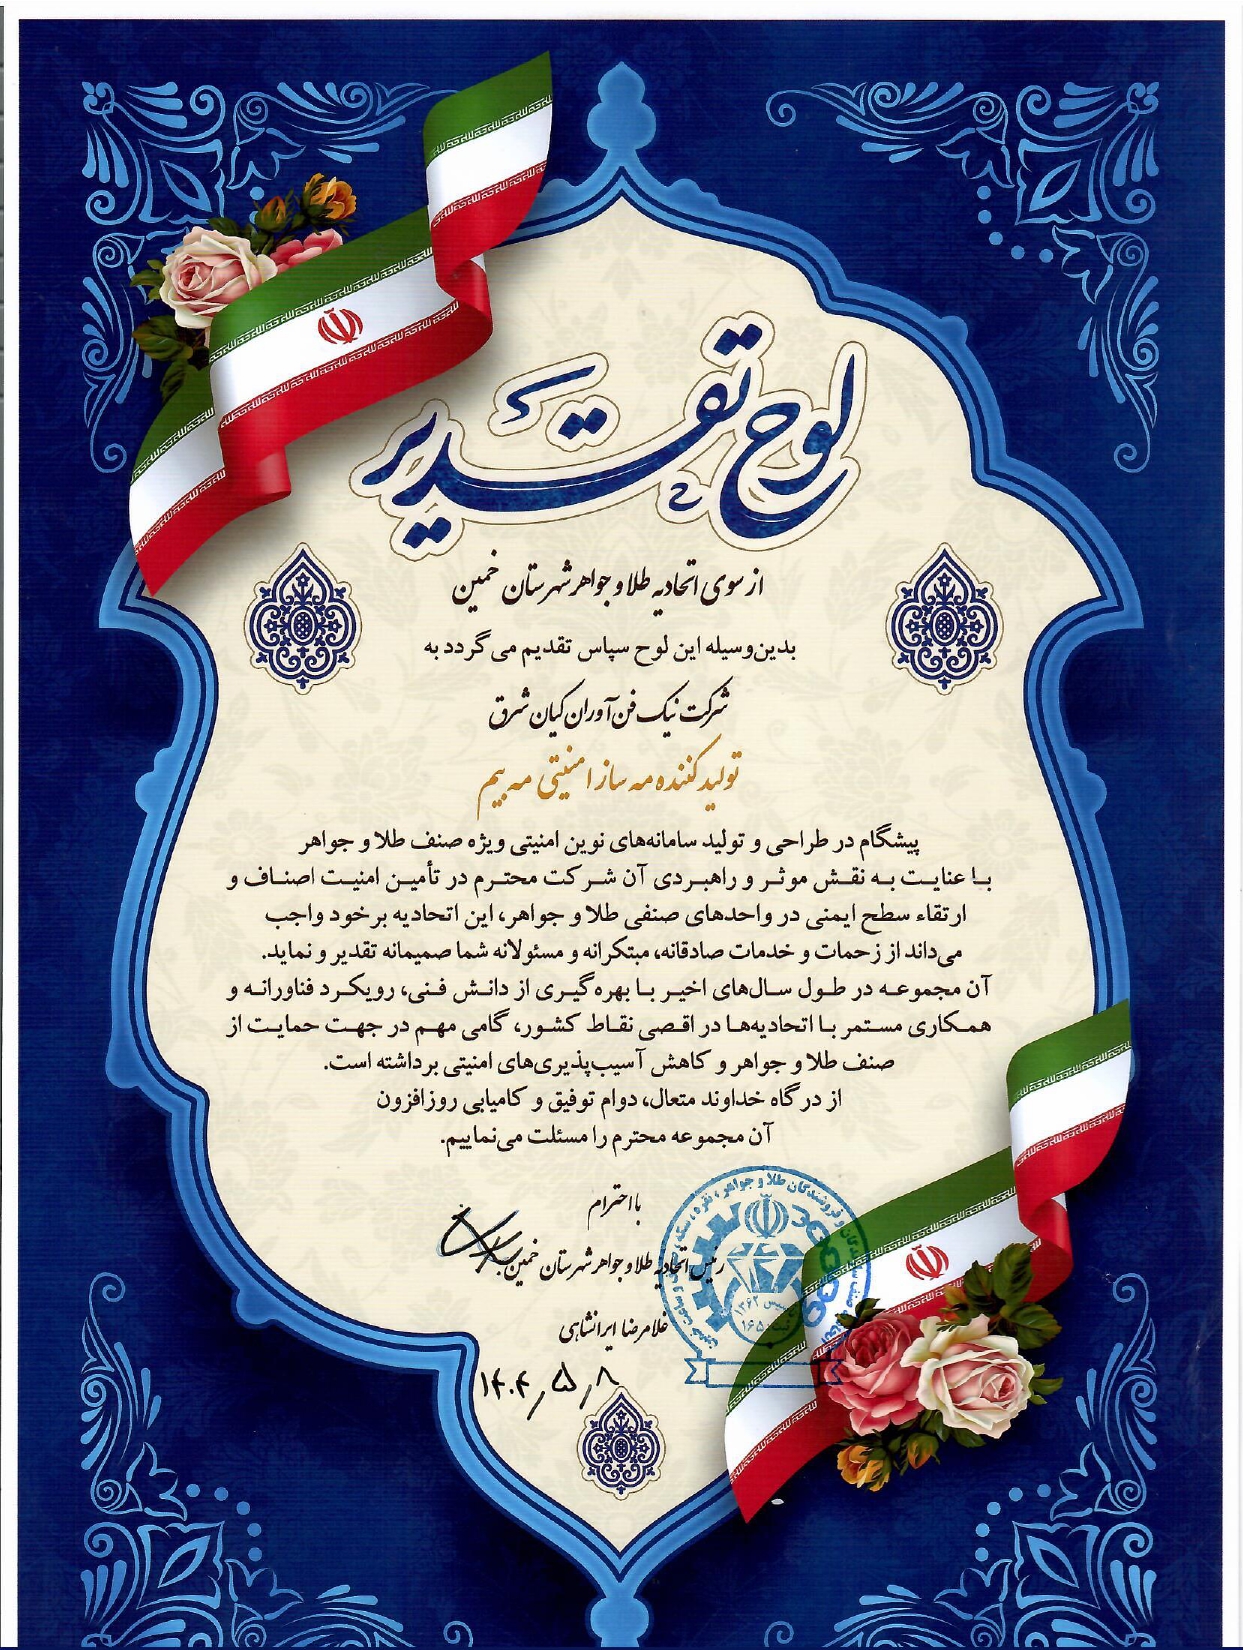 لوح تقدیر
از سوی اتحادیه طلا و جواهر شهرستان خمین
بدین‌وسیله این لوح سپاس تقدیم می گردد به
شرکت نیک فن‌آوران کیان شرق
تولید کننده مه ساز امنیتی مه بیم
پیشگام در طراحی و تولید سامانه‌های نوین امنیتی ویژه صنف طلا و جواهر
با عنایت به نقش موثر و راهبردی آن شرکت محترم در تأمین امنیت اصناف و
ارتقاء سطح ایمنی در واحدهای صنفی طلا و جواهر، این اتحادیه بر خود واجب
می‌داند از زحمات و خدمات صادقانه، مبتکرانه و مسئولانه شما صمیمانه تقدیر و نماید.
آن مجموعه در طول سال‌های اخیر با بهره‌گیری از دانش فنی، رویکرد فناورانه و
همکاری مستمر با اتحادیه‌ها در اقصی نقاط کشور، گامی مهم در جهت حمایت از
صنف طلا و جواهر و کاهش آسیب‌پذیری‌های امنیتی برداشته است.
از درگاه خداوند متعال، دوام توفیق و کامیابی روزافزون
آن مجموعه محترم را مسئلت می‌نماییم.
با احترام
رئیس اتحادیه طلا و جواهر شهرستان خمین
غلامرضا ایرانشاهی
۱۴۰۴/۵/۸
و فروشندگان طلا و جواهر، نقره، سکه
۱۳۶۲
۱۶۵